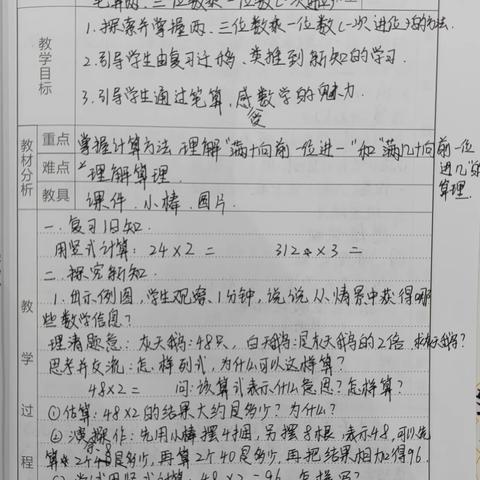 笔算两、三位数乘一位数(一次进位)
教学目标
1.探索并掌握两、三位数乘一位数(一次进位)的方法.
2.引导学生由复习迁移、类推到新知的学习.
3.引导学生通过笔算,感受数学的魅力.
教材分析
重点 掌握计算方法 理解"满十向前一位进一"和"满几十向前一位进几"的算理.
难点 理解算理.
教具 课件.小棒.图片.
教学过程
一.复习旧知.
用竖式计算: 24×2= 312×3=
二.探究新知.
1.出示例图,学生观察1分钟,说说从情景中获得哪
些数学信息?
理清题意:灰天鹅:48只,白天鹅:是灰天鹅的2倍.
思考并交流:怎样列式,为什么可以这样算?
48×2= 问:该算式表示什么意思?怎样算?
①估算:48×2的结果大约是多少?为什么?
②操作:先用小棒摆4捆,另摆8根,表示48,可以先
算2个8是多少,再算2个40是多少,再把结果相加得96.
48×2=96.